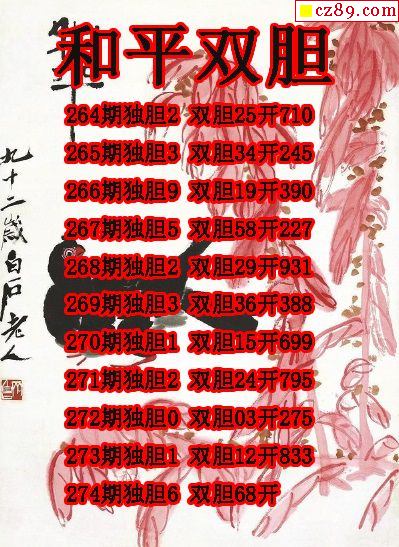 cz89.com
和平双胆
264期独胆2 双胆25开710
265期独胆3 双胆34开245
266期独胆9 双胆19开390
267期独胆5 双胆58开227
268期独胆2 双胆29开931
269期独胆3 双胆36开388
270期独胆1 双胆15开699
271期独胆2 双胆24开795
272期独胆0 双胆03开275
273期独胆1 双胆12开833
274期独胆6 双胆68开
九十二岁白石老人